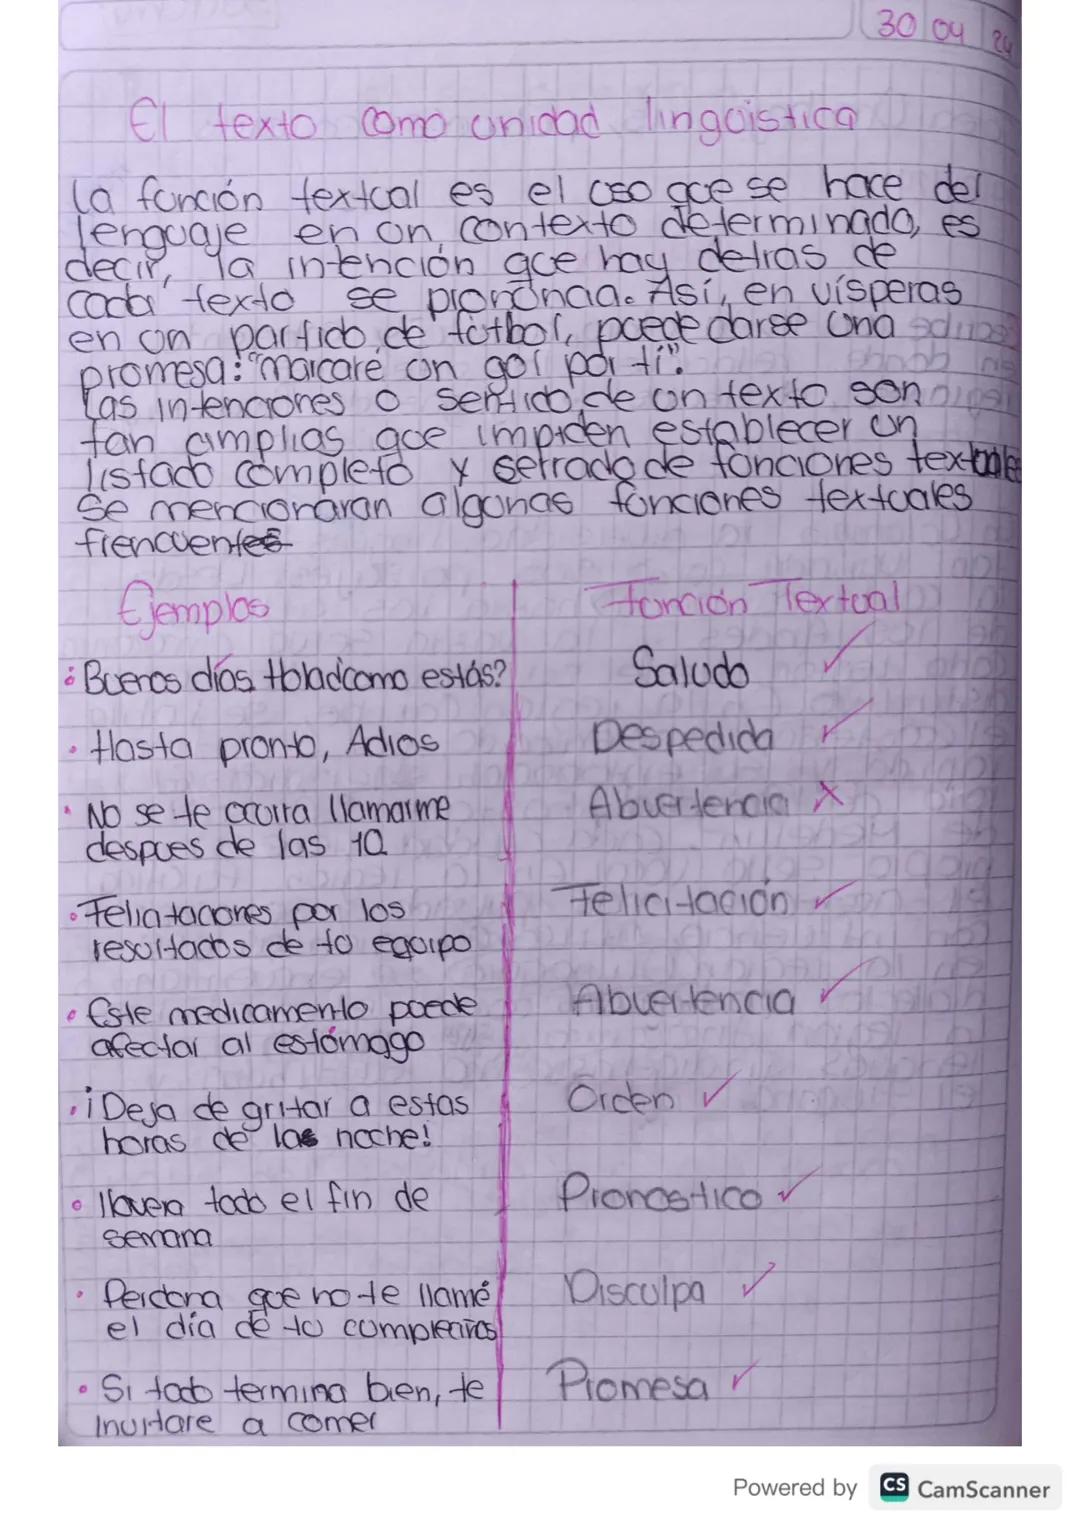 30 04 24
El texto como unidad lingüistica
La función textual es el uso que se hace del
lenguaje en un contexto determinado, es
decir, la intención que hay detras de
cada texto se pronuncia. Así, en vísperas
en un partido de fútbol, puede darse una
promesa: "marcaré un gol por ti".
Las intenciones o sentido de un texto son
tan amplias que impiden establecer un
listado completo y serrado de funciones textuales
Se mencionaran algunas funciones textuales
frencuentes
Ejemplos Función Textual
: Buenos días Hola¿como estás? Saludo ✓
• Hasta pronto, Adios Despedida ✓
• No se te ocurra llamarme Abvertencia X
despues de las 10
• Felicitaciones por los Felicitación ✓
resultados de tu equipo
• Este medicamento puede Abvertencia ✓
afectar al estómago
• ¡Deja de gritar a estas Orden ✓
horas de las noche!
• llovera todo el fin de Pronostico ✓
semana
• Perdona que no te llamé Disculpa ✓
el día de tu cumpleaños
• Si todo termina bien, te Promesa ✓
invitare a comer
Powered by CS CamScanner